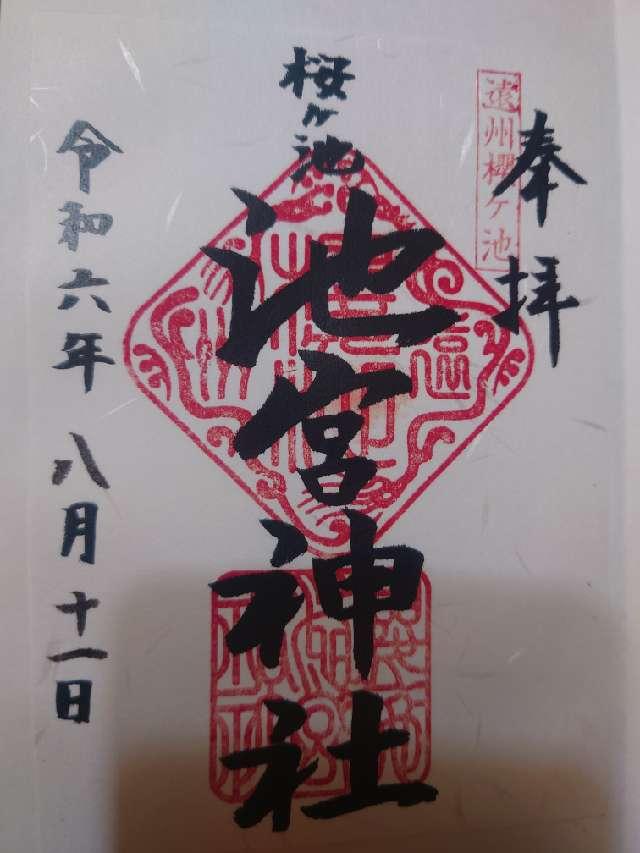 奉拝
遠州櫻ケ池
桜ヶ池
池宮神社
令和六年八月十一日